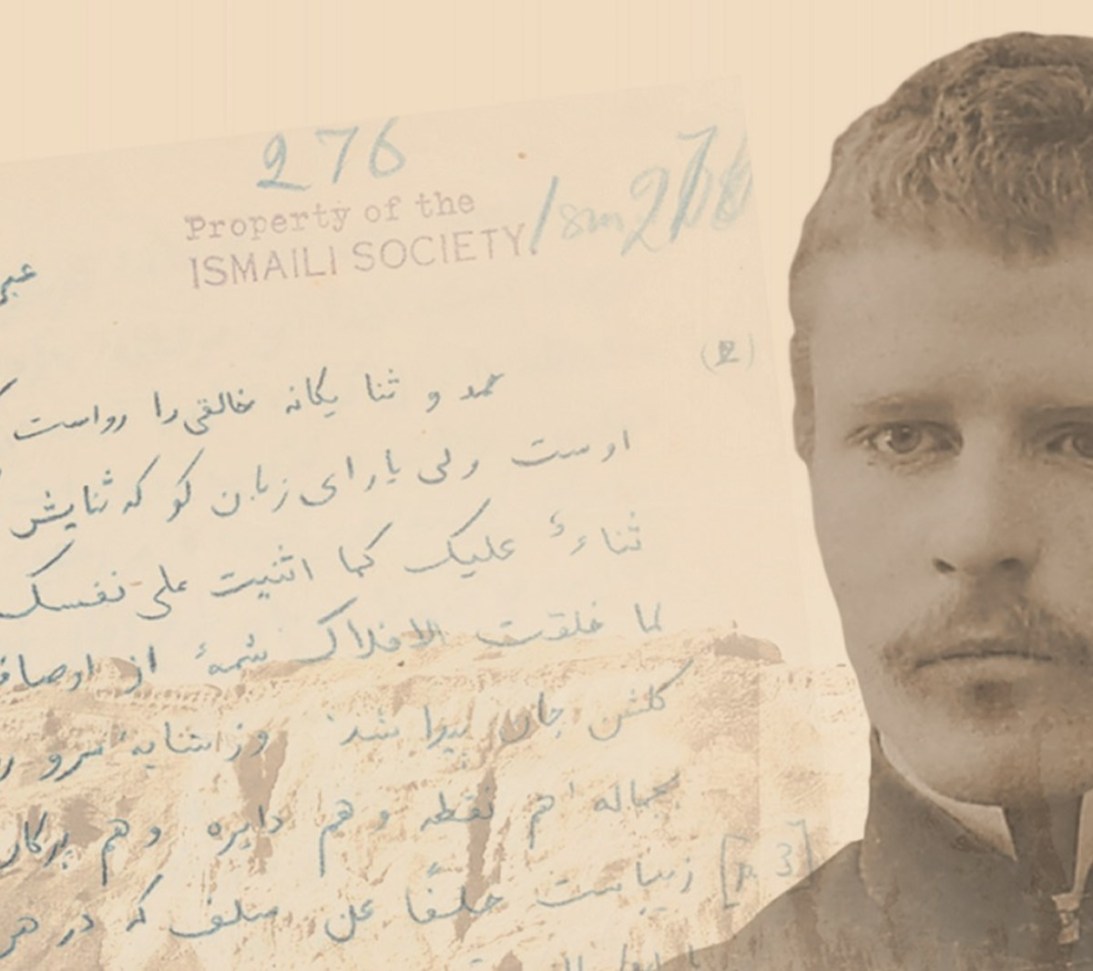 276
Ism 276
Property of the
ISMAILI SOCIETY.
(2)
حمد و ثنا یگانه خالقی را رواست
اوست ولی یارای زبان کو که ثنایش
ثناءً علیک کما اثنیت علی نفسک
لما خلقت الافلاک شمهٔ از اوصاف
گلشن جان پیرا شد وز ثنایه سرو
بجماله هم نقطه و هم دایره و هم پرکار
[p 3] زیباست خلفًا عن سلف که در هر